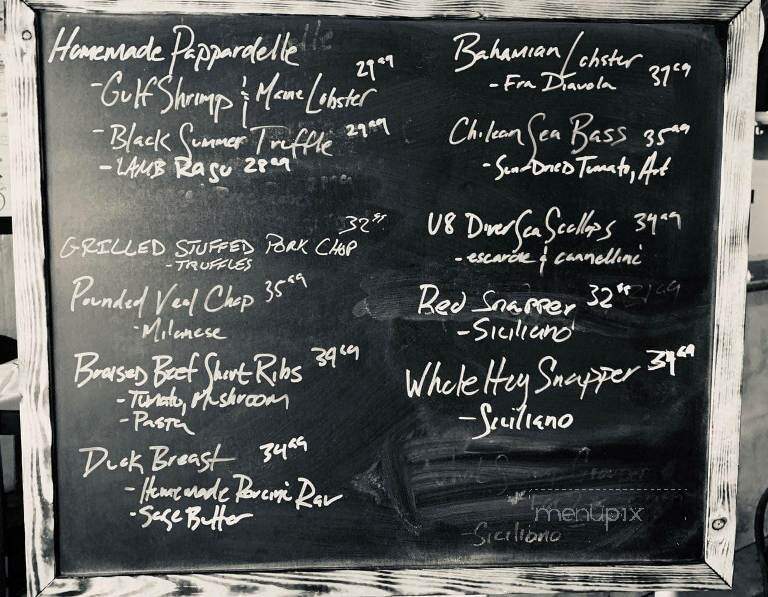 Homemade Pappardelle
- Gulf Shrimp & Maine Lobster 29 99
- Black Summer Truffle 29 99
- LAMB Ragu 28 99
GRILLED STUFFED PORK CHOP 32 99
- TRUFFLES
Pounded Veal Chop 35 99
- Milanese
Braised Beef Short Ribs 39 99
- Tomato, Mushroom
- Pasta
Duck Breast 34 99
- Homemade Porcini Rav
- Sage Butter
Bahamian Lobster 39 99
- Fra Diavola
Chilean Sea Bass 35 99
- Sun-Dried Tomato, Art
U8 Diver Sea Scallops 34 99
- escarole & cannellini
Red Snapper 32 99
- Siciliano
Whole Hog Snapper 34 99
- Siciliano
menupix
- Siciliano